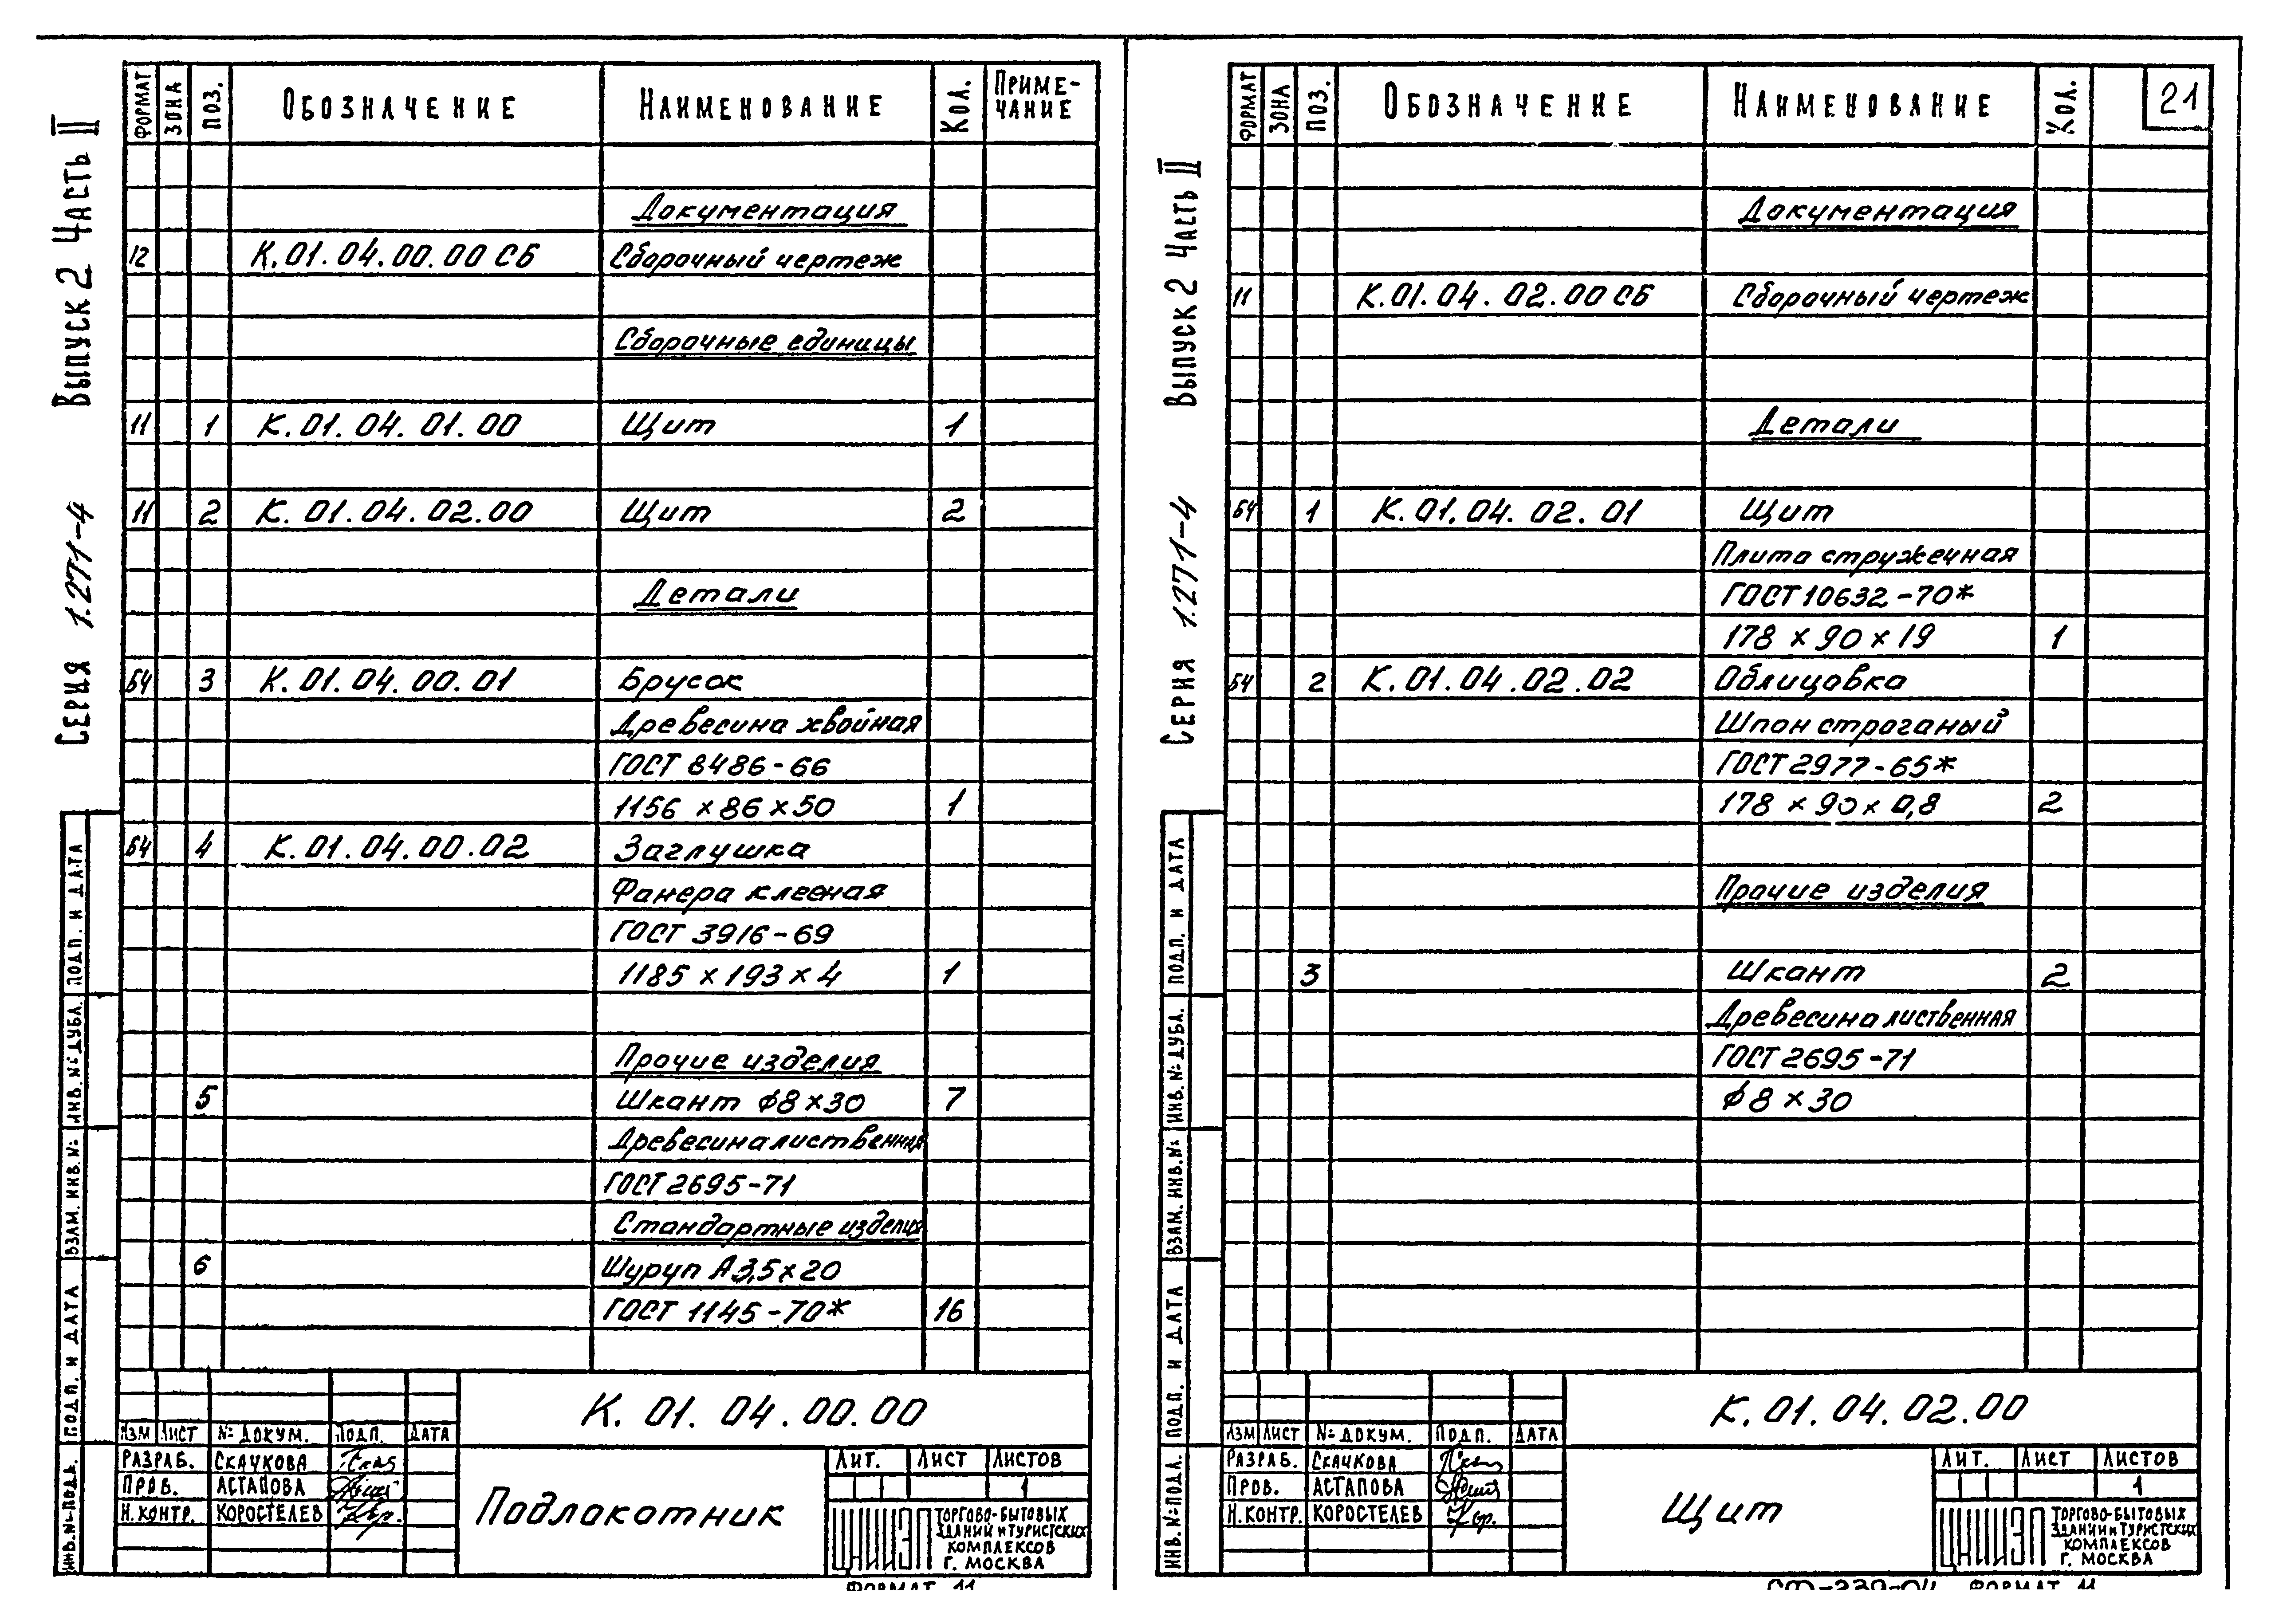 Серия 1.271-4 Выпуск 2 Часть II
ФОРМАТ ЗОНА ПОЗ. ОБОЗНАЧЕНИЕ НАИМЕНОВАНИЕ КОЛ. ПРИМЕ-
ЧАНИЕ
Документация
12 К.01.04.00.00 СБ Сборочный чертеж
Сборочные единицы
11 1 К.01.04.01.00 Щит 1
11 2 К.01.04.02.00 Щит 2
Детали
БЧ 3 К.01.04.00.01 Брусок
Древесина хвойная
ГОСТ 8486-66
1156 х 86 х 50 1
БЧ 4 К.01.04.00.02 Заглушка
Фанера клееная
ГОСТ 3916-69
1185 х 193 х 4 1
Прочие изделия
5 Шкант ф8х30 7
Древесина лиственная
ГОСТ 2695-71
Стандартные изделия
6 Шуруп А3,5х20
ГОСТ 1145-70* 16
ИНВ.№ ПОДЛ. ПОДП. И ДАТА ВЗАМ. ИНВ.№ ИНВ.№ ДУБЛ. ПОДП. И ДАТА
К.01.04.00.00
ИЗМ ЛИСТ № ДОКУМ. ПОДП. ДАТА
РАЗРАБ. СКАЧКОВА
ПРОВ. АСТАПОВА
Н.КОНТР. КОРОСТЕЛЕВ
Подлокотник
ЛИТ. ЛИСТ ЛИСТОВ
1
ЦНИИЭП ТОРГОВО-БЫТОВЫХ
ЗДАНИЙ И ТУРИСТСКИХ
КОМПЛЕКСОВ
Г. МОСКВА
ФОРМАТ 11
Серия 1.271-4 Выпуск 2 Часть II
ФОРМАТ ЗОНА ПОЗ. ОБОЗНАЧЕНИЕ НАИМЕНОВАНИЕ КОЛ. 21
Документация
11 К.01.04.02.00 СБ Сборочный чертеж
Детали
БЧ 1 К.01.04.02.01 Щит
Плита стружечная
ГОСТ 10632-70*
178 х 90 х 19 1
БЧ 2 К.01.04.02.02 Облицовка
Шпон строганый
ГОСТ 2977-65*
178 х 90 х 0,8 2
Прочие изделия
3 Шкант 2
Древесина лиственная
ГОСТ 2695-71
ф 8 х 30
ИНВ.№ ПОДЛ. ПОДП. И ДАТА ВЗАМ. ИНВ.№ ИНВ.№ ДУБЛ. ПОДП. И ДАТА
К.01.04.02.00
ИЗМ ЛИСТ № ДОКУМ. ПОДП. ДАТА
РАЗРАБ. СКАЧКОВА
ПРОВ. АСТАПОВА
Н.КОНТР. КОРОСТЕЛЕВ
Щит
ЛИТ. ЛИСТ ЛИСТОВ
1
ЦНИИЭП ТОРГОВО-БЫТОВЫХ
ЗДАНИЙ И ТУРИСТСКИХ
КОМПЛЕКСОВ
Г. МОСКВА
ФОРМАТ 11